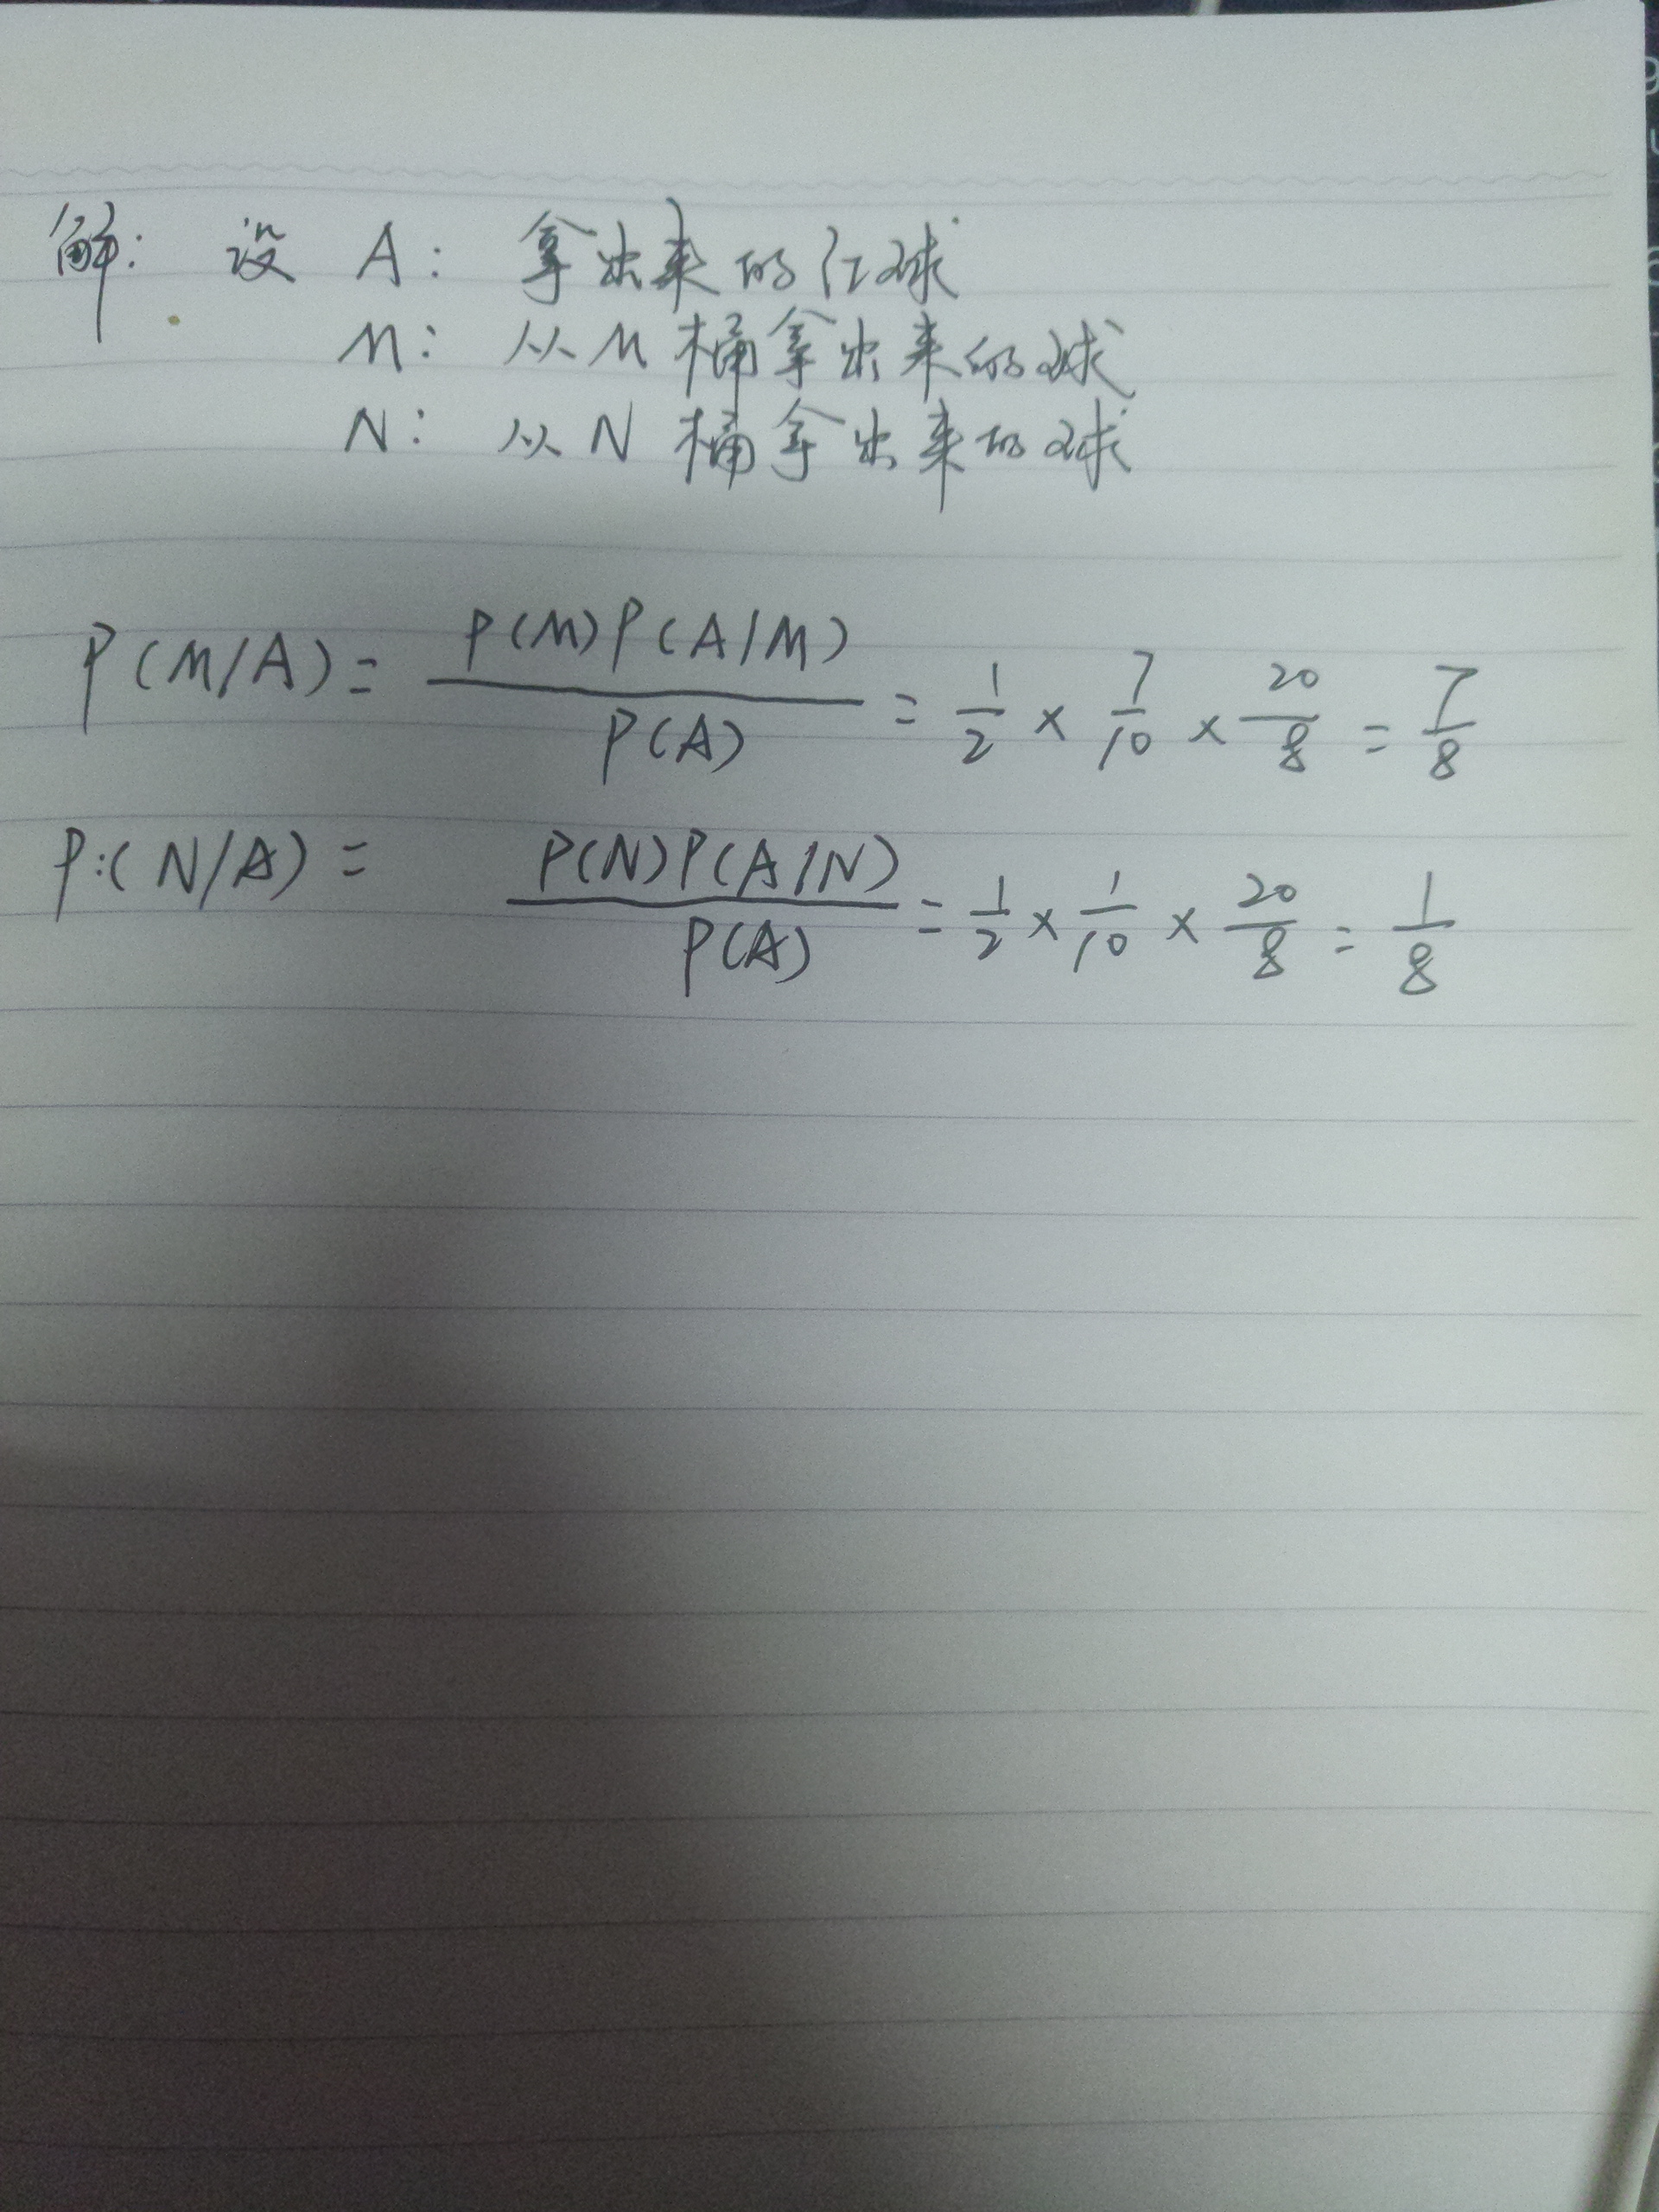 解: 设 A: 拿出来的红球
M: 从M桶拿出来的球
N: 从N桶拿出来的球
P(M/A)= P(M)P(A/M) / P(A) = 1/2 × 7/10 × 20/8 = 7/8
P:(N/A)= P(N)P(A/N) / P(A) = 1/2 × 1/10 × 20/8 = 1/8